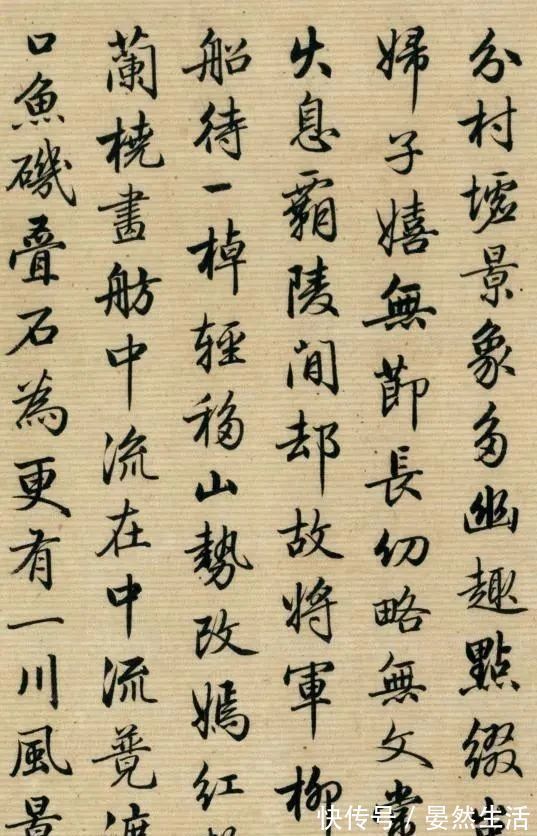 分村墟景象多幽趣點綴
婦子嬉無節長幼略無文常
火息霸陵間却故將軍柳
船待一棹輕移山勢改嫣紅
蘭橈畫舫中流在中流薎渡
口魚磯叠石為更有一川風景
快传号 / 晏然生活